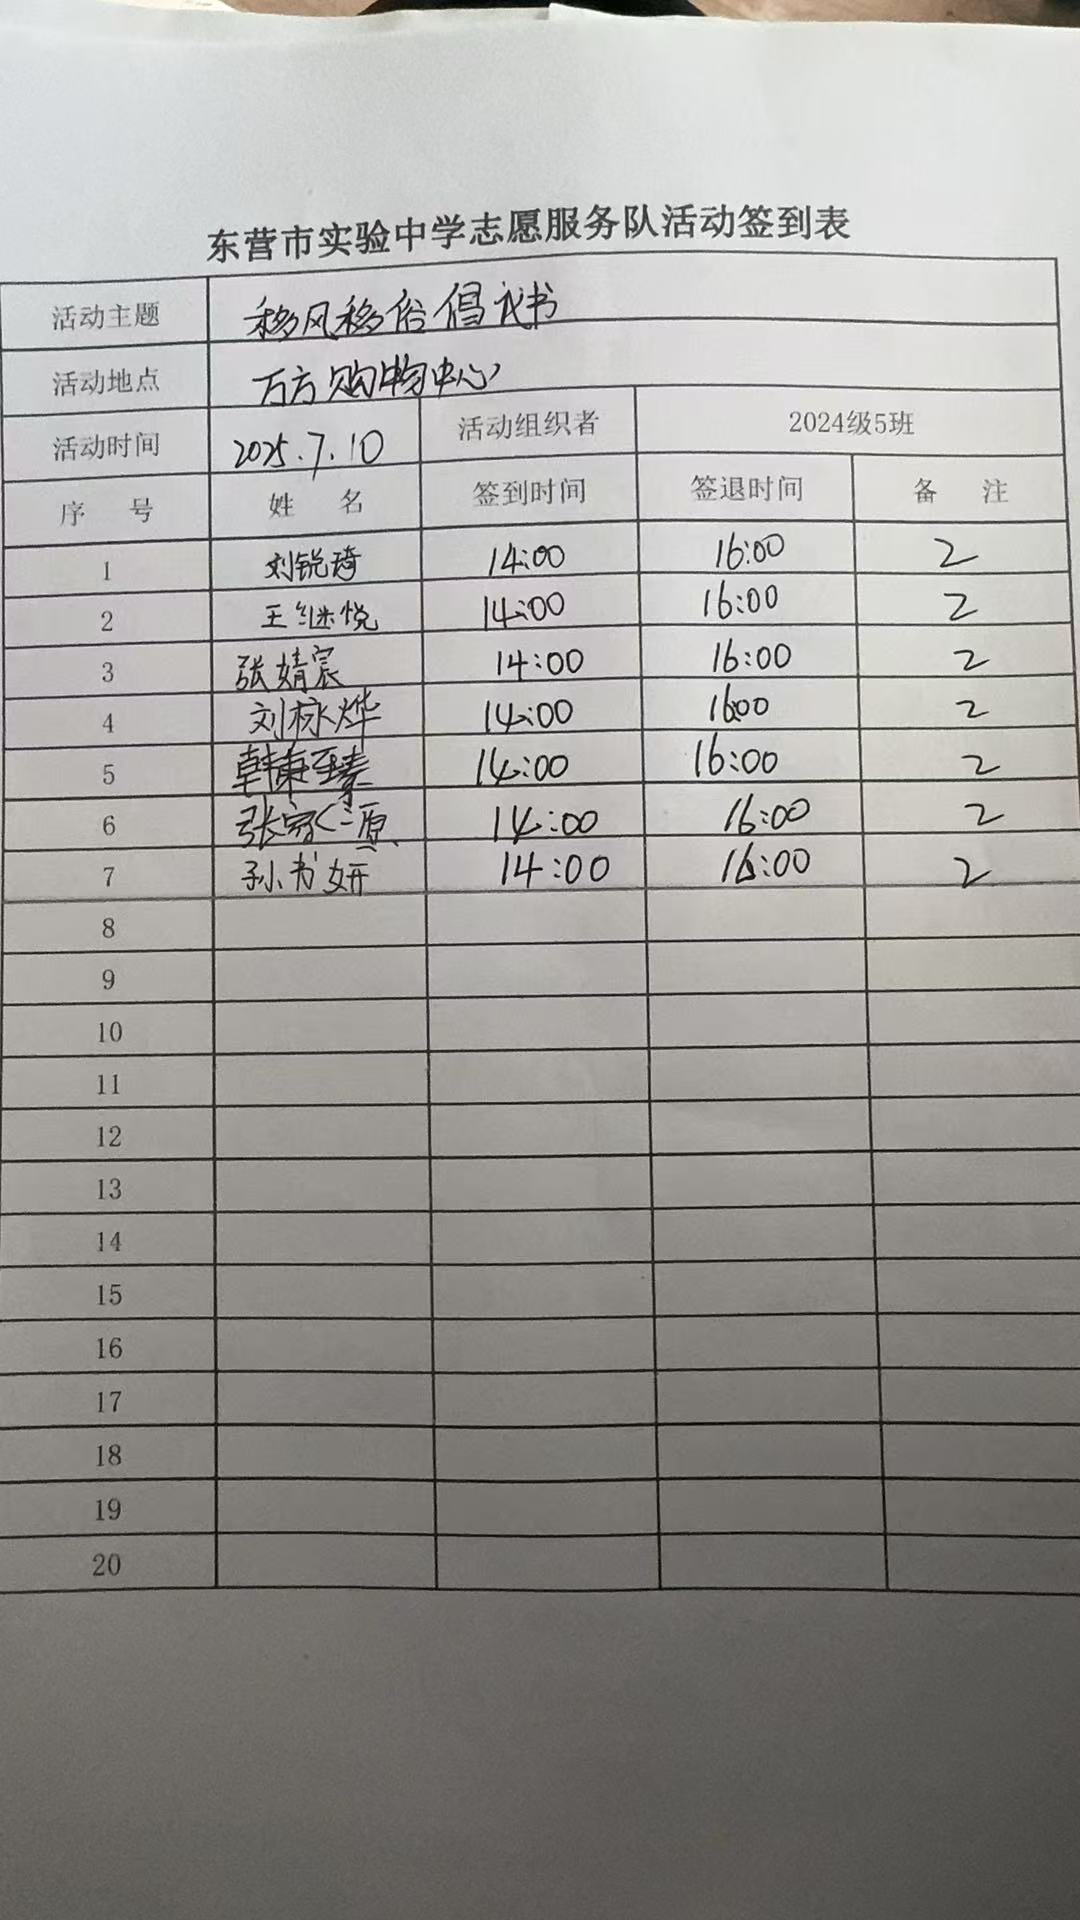 东营市实验中学志愿服务队活动签到表
活动主题 移风移俗倡议书
活动地点 万方购物中心
活动时间 2025.7.10 活动组织者 2024级5班
序 号 姓 名 签到时间 签退时间 备 注
1 刘锐琦 14:00 16:00 2
2 王继悦 14:00 16:00 2
3 张婧宸 14:00 16:00 2
4 14:00 1600 2
5 14:00 16:00 2
6 14:00 16:00 2
7 孙书妍 14:00 16:00 2
8
9
10
11
12
13
14
15
16
17
18
19
20